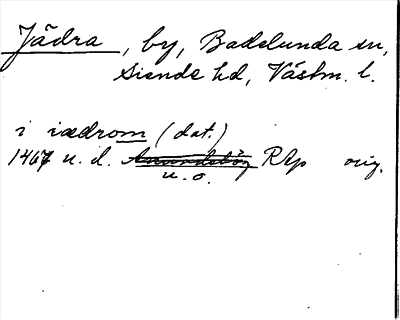 Jädra, by, Badelunda sn,
Siende hd, Västm. l.
i iædrom (dat.)
1467 u. d. RAp orig.
u. o.